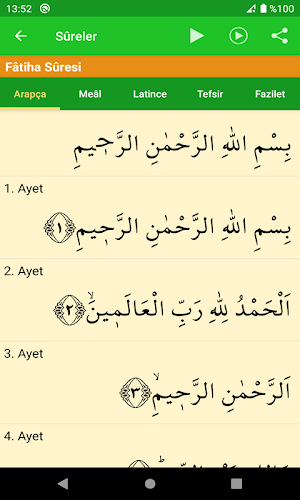 13:52 %100
Sûreler
Fâtiha Sûresi
Arapça Meâl Latince Tefsir Fazilet
بِسْمِ اللهِ الرَّحْمٰنِ الرَّحِيمِ
1. Ayet
بِسْمِ اللهِ الرَّحْمٰنِ الرَّحِيمِ ﴿١﴾
2. Ayet
اَلْحَمْدُ لِلهِ رَبِّ الْعَالَمِينَۙ ﴿٢﴾
3. Ayet
اَلرَّحْمٰنِ الرَّحِيمِۙ ﴿٣﴾
4. Ayet